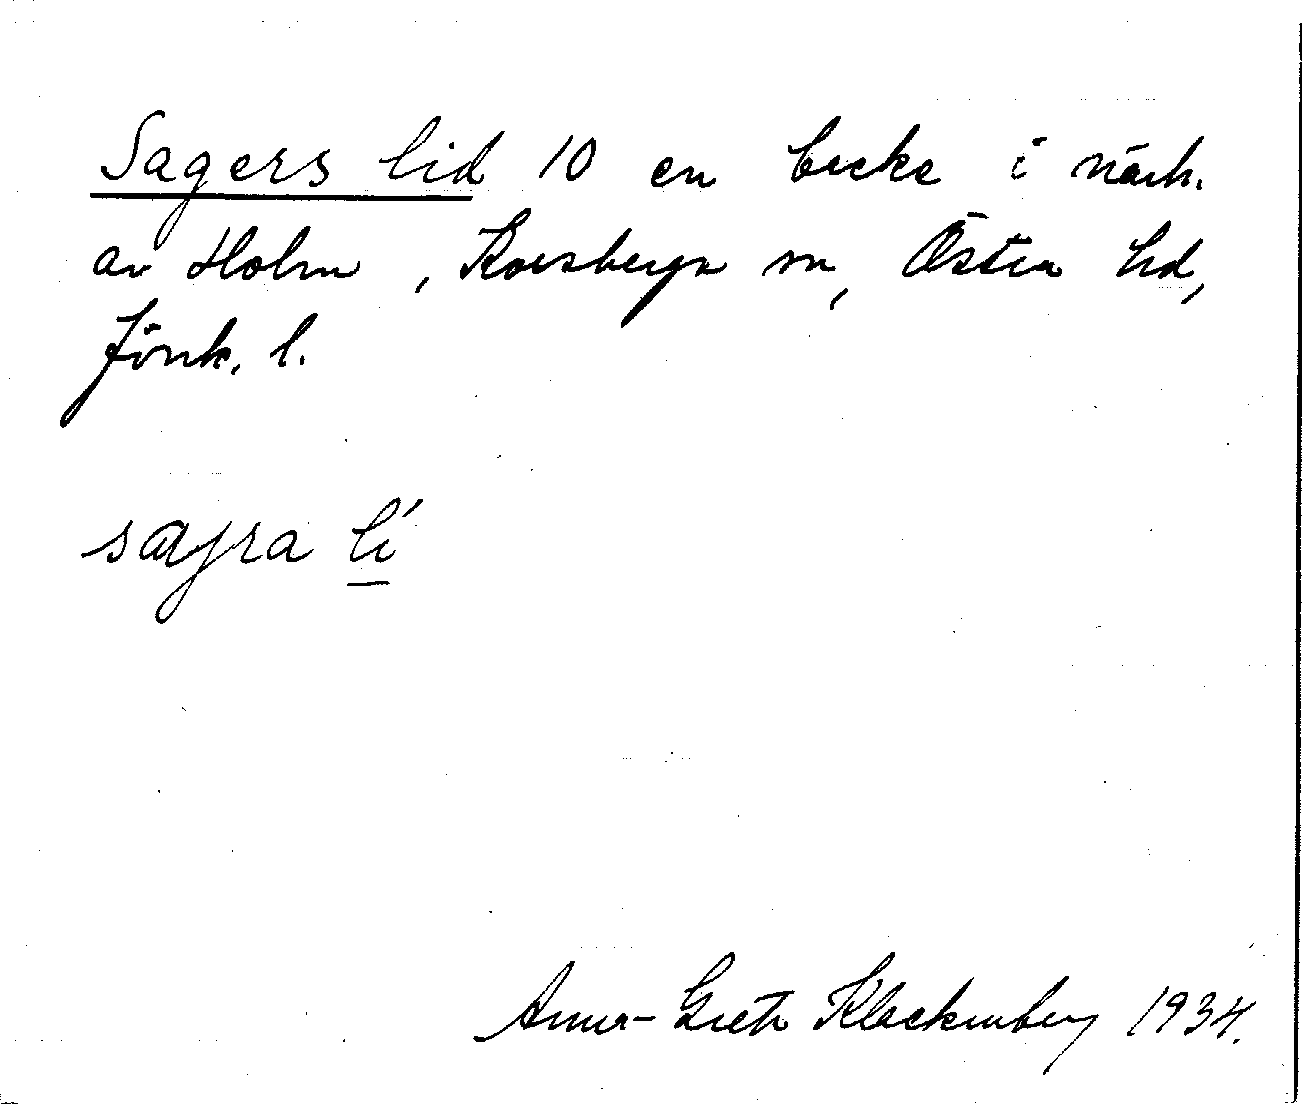 Sagers lid 10 en backe i närh.
av Holm, Korsberga sn, Östra hd,
Jönk. l.
sagra lí
Anna-Greta Klockenberg 1934.